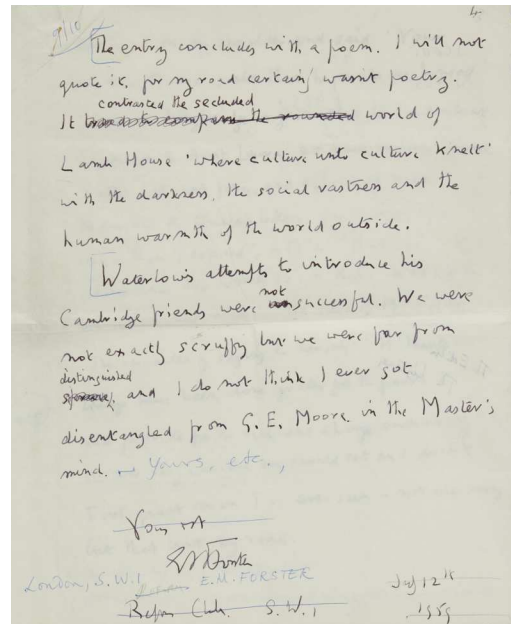 4
9/10
The entry concludes with a poem. I will not
quote it, for my road certainly wasn't poetry.
contrasted the secluded
It world of
Lamb House 'where culture unto culture knelt'
with the darkness, the social vastness and the
human warmth of the world outside.
Waterlow's attempts to introduce his
not
Cambridge friends were successful. We were
not exactly scruffy but we were far from
distinguished
and I do not think I ever got
disentangled from G. E. Moore in the Master's
mind. Yours, etc.,
EM Forster
London, S.W.1 E.M. FORSTER
Reform Club. S.W.1
July 12th
1959